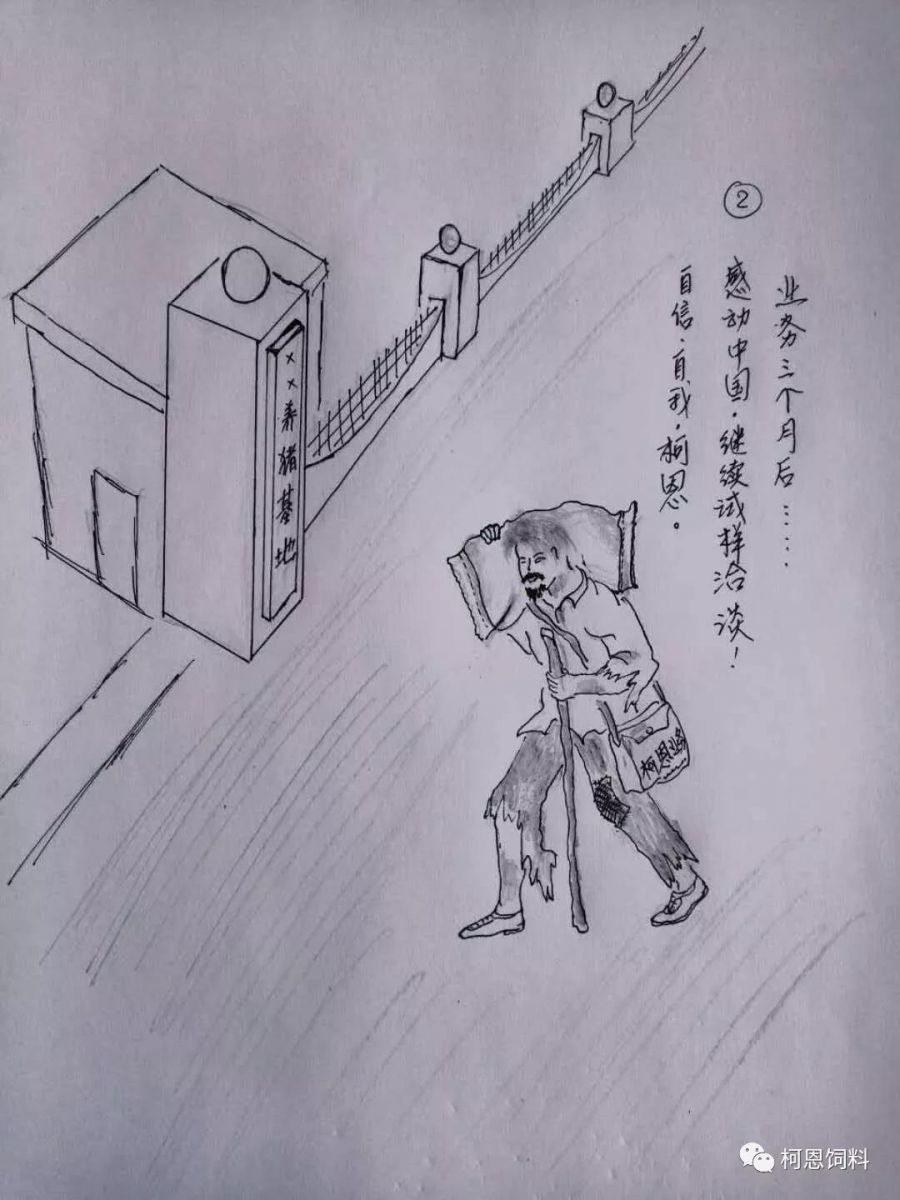 ②
业务三个月后……
感动中国.继续试样洽谈!
自信.自我.柯恩。
××养猪基地
柯恩业务
柯恩饲料